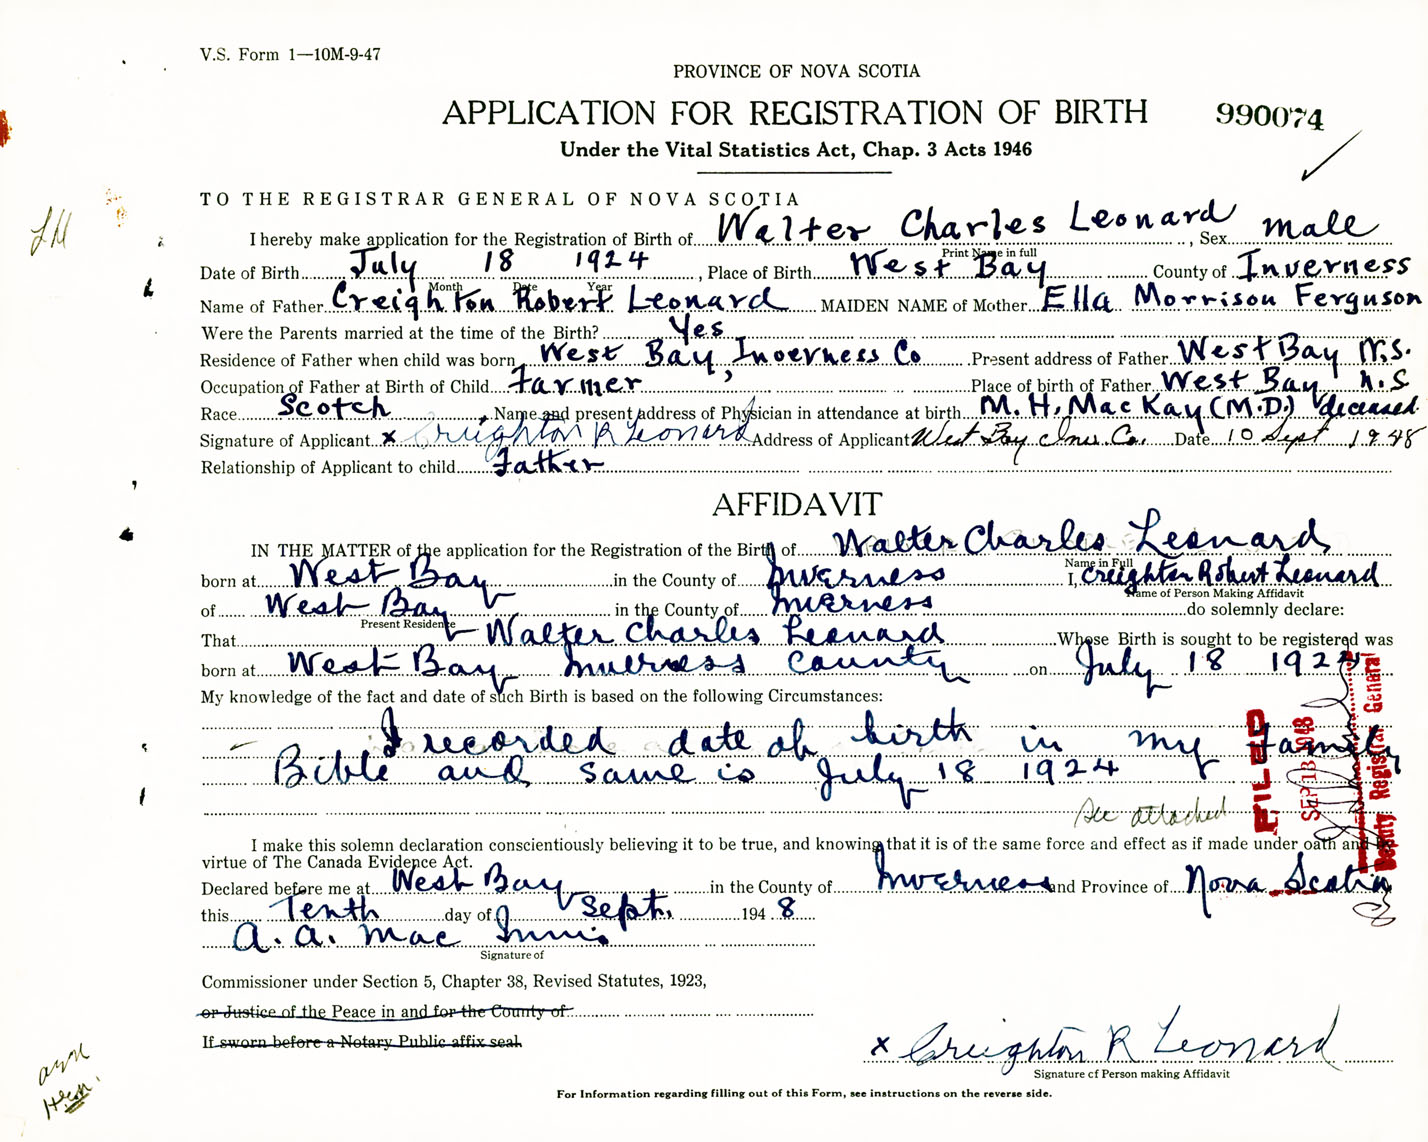 V.S. Form 1—10M-9-47
PROVINCE OF NOVA SCOTIA
APPLICATION FOR REGISTRATION OF BIRTH 990074
Under the Vital Statistics Act, Chap. 3 Acts 1946
TO THE REGISTRAR GENERAL OF NOVA SCOTIA
LM
I hereby make application for the Registration of Birth of Walter Charles Leonard, Sex male
Print Name in full
Date of Birth July 18 1924, Place of Birth West Bay County of Inverness
Month Date Year
Name of Father Creighton Robert Leonard MAIDEN NAME of Mother Ella Morrison Ferguson
Were the Parents married at the time of the Birth? Yes
Residence of Father when child was born West Bay, Inverness Co Present address of Father West Bay N.S.
Occupation of Father at Birth of Child Farmer Place of birth of Father West Bay N.S
Race Scotch, Name and present address of Physician in attendance at birth M. H. MacKay (M.D.) deceased
Signature of Applicant x Creighton R Leonard Address of Applicant West Bay Inv. Co. Date 10 Sept 1948
Relationship of Applicant to child Father
AFFIDAVIT
IN THE MATTER of the application for the Registration of the Birth of Walter Charles Leonard
Name in Full
born at West Bay in the County of Inverness I, Creighton Robert Leonard
Name of Person Making Affidavit
of West Bay in the County of Inverness do solemnly declare:
Present Residence
That Walter Charles Leonard Whose Birth is sought to be registered was
born at West Bay Inverness County on July 18 1924
My knowledge of the fact and date of such Birth is based on the following Circumstances:
I recorded date of birth in my Family
Bible and same is July 18 1924
See attached
FILED
SEP 13 1948
Deputy Registrar General
I make this solemn declaration conscientiously believing it to be true, and knowing that it is of the same force and effect as if made under oath and by
virtue of The Canada Evidence Act.
Declared before me at West Bay in the County of Inverness and Province of Nova Scotia
this Tenth day of Sept. 1948
A. A. Mac Innis
Signature of
Commissioner under Section 5, Chapter 38, Revised Statutes, 1923,
or Justice of the Peace in and for the County of
If sworn before a Notary Public affix seal
x Creighton R Leonard
Signature of Person making Affidavit
For Information regarding filling out of this Form, see instructions on the reverse side.